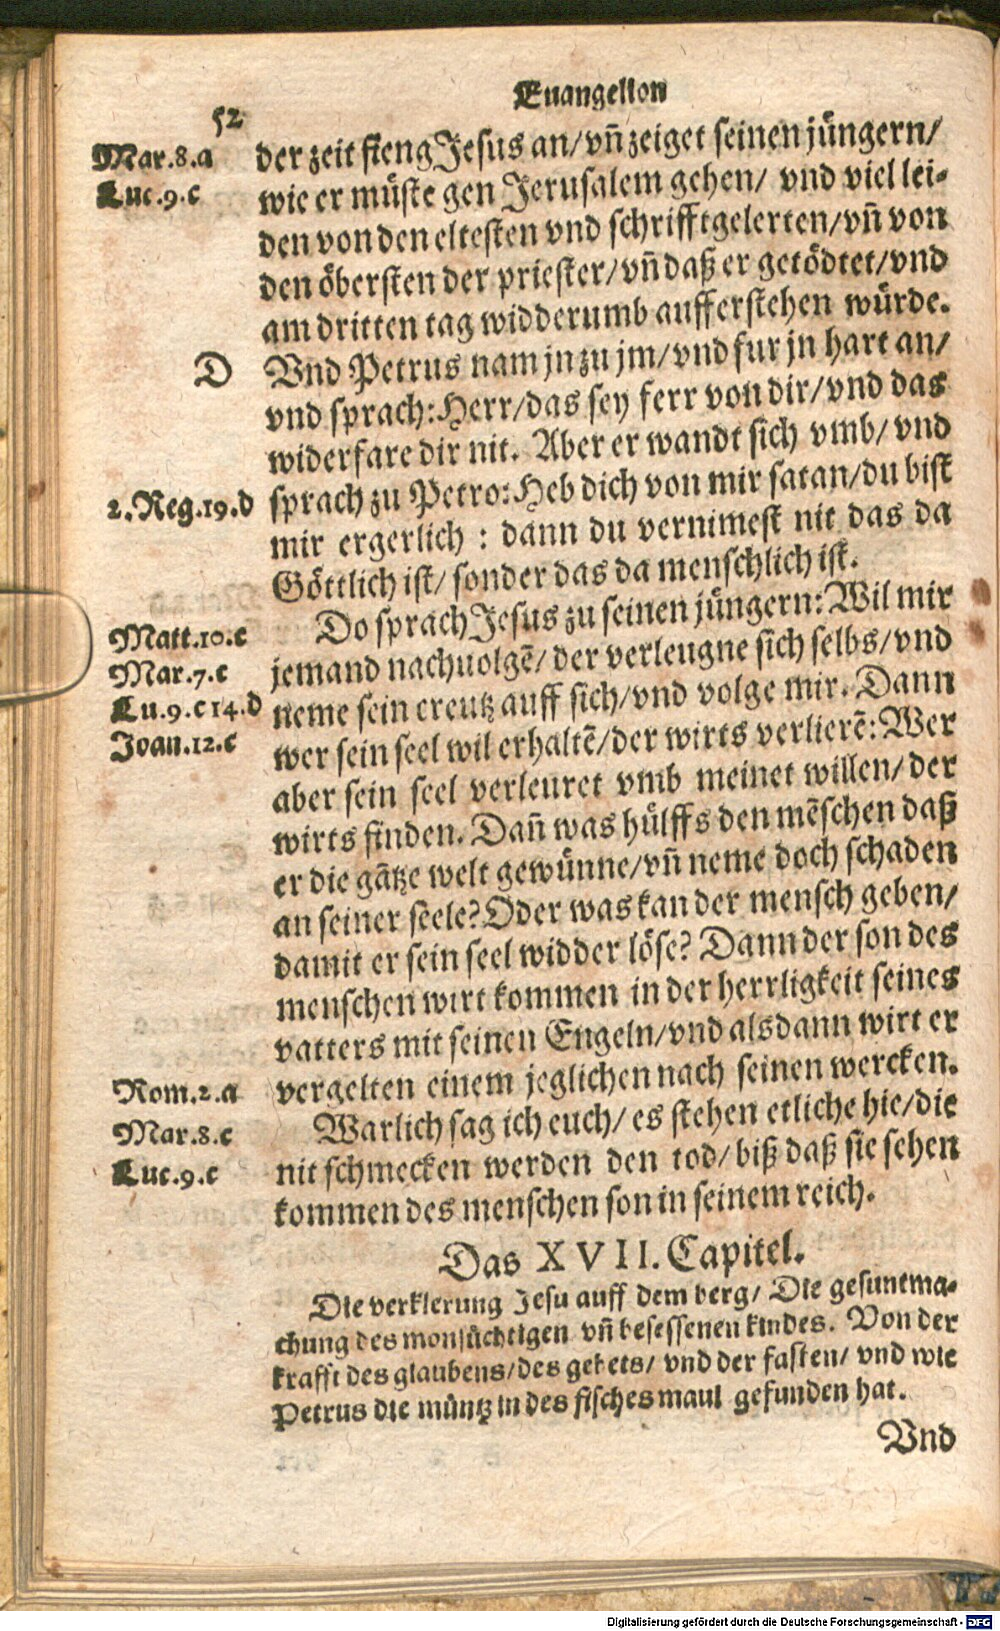 Euangelion
52
Mar.8.a
Luc.9.c
der zeit fieng Jesus an/vn̄ zeiget seinen jüngern/
wie er müste gen Jerusalem gehen/ vnd viel lei-
den von den eltesten vnd schrifftgelerten/vn̄ von
den öbersten der priester/vn̄ daß er getödtet/vnd
am dritten tag widderumb aufferstehen würde.
D
Vnd Petrus nam jn zu jm/vnd fur jn hart an/
vnd sprach:Herr/das sey ferr von dir/vnd das
widerfare dir nit. Aber er wandt sich vmb/ vnd
2.Reg.19.d
sprach zu Petro:Heb dich von mir satan/du bist
mir ergerlich : dann du vernimest nit das da
Göttlich ist/ sonder das da menschlich ist.
Matt.10.c
Mar.7.c
Lu.9.c 14.d
Joan.12.c
Do sprach Jesus zu seinen jüngern:Wil mir
jemand nachuolgē/ der verleugne sich selbs/vnd
neme sein creutz auff sich/vnd volge mir. Dann
wer sein seel wil erhaltē/der wirts verlierē:Wer
aber sein seel verleuret vmb meinet willen/ der
wirts finden. Dan̄ was hülffs den mēschen daß
er die gātze welt gewünne/vn̄ neme doch schaden
an seiner seele?Oder was kan der mensch geben/
damit er sein seel widder löse? Dann der son des
menschen wirt kommen in der herrligkeit seines
vatters mit seinen Engeln/vnd alsdann wirt er
Rom.2.a
vergelten einem jeglichen nach seinen wercken.
Mar.8.c
Luc.9.c
Warlich sag ich euch/ es stehen etliche hie/die
nit schmecken werden den tod/biß daß sie sehen
kommen des menschen son in seinem reich.
Das XVII. Capitel.
Die verklerung Jesu auff dem berg/ Die gesuntma-
chung des monsüchtigen vn̄ besessenen kindes. Von der
krafft des glaubens/des gebets/ vnd der fasten/ vnd wie
Petrus die müntz in des fisches maul gefunden hat.
Vnd
Digitalisierung gefördert durch die Deutsche Forschungsgemeinschaft - DFG